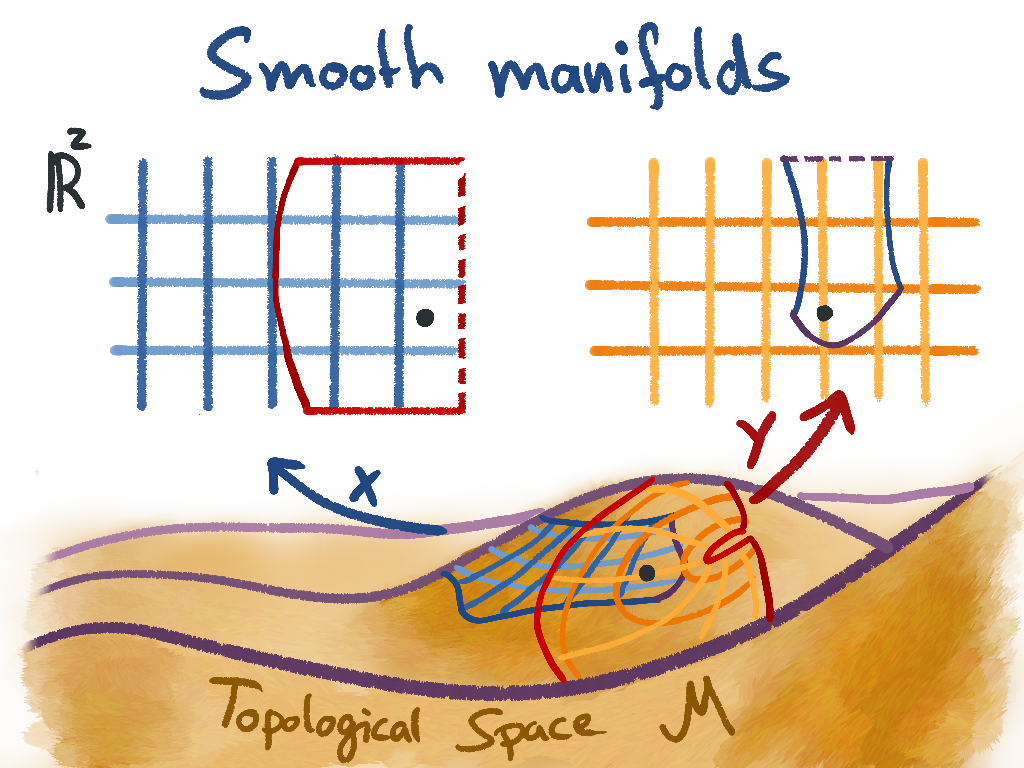 Smooth manifolds
ℝ²
X
Y
Topological Space M